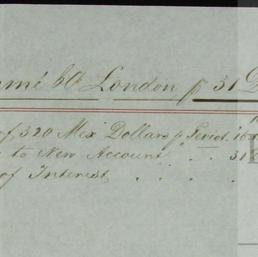 London p 31 D
of 320 Mex Dollars p 16
to New Account . . 31
of Interest . . . .